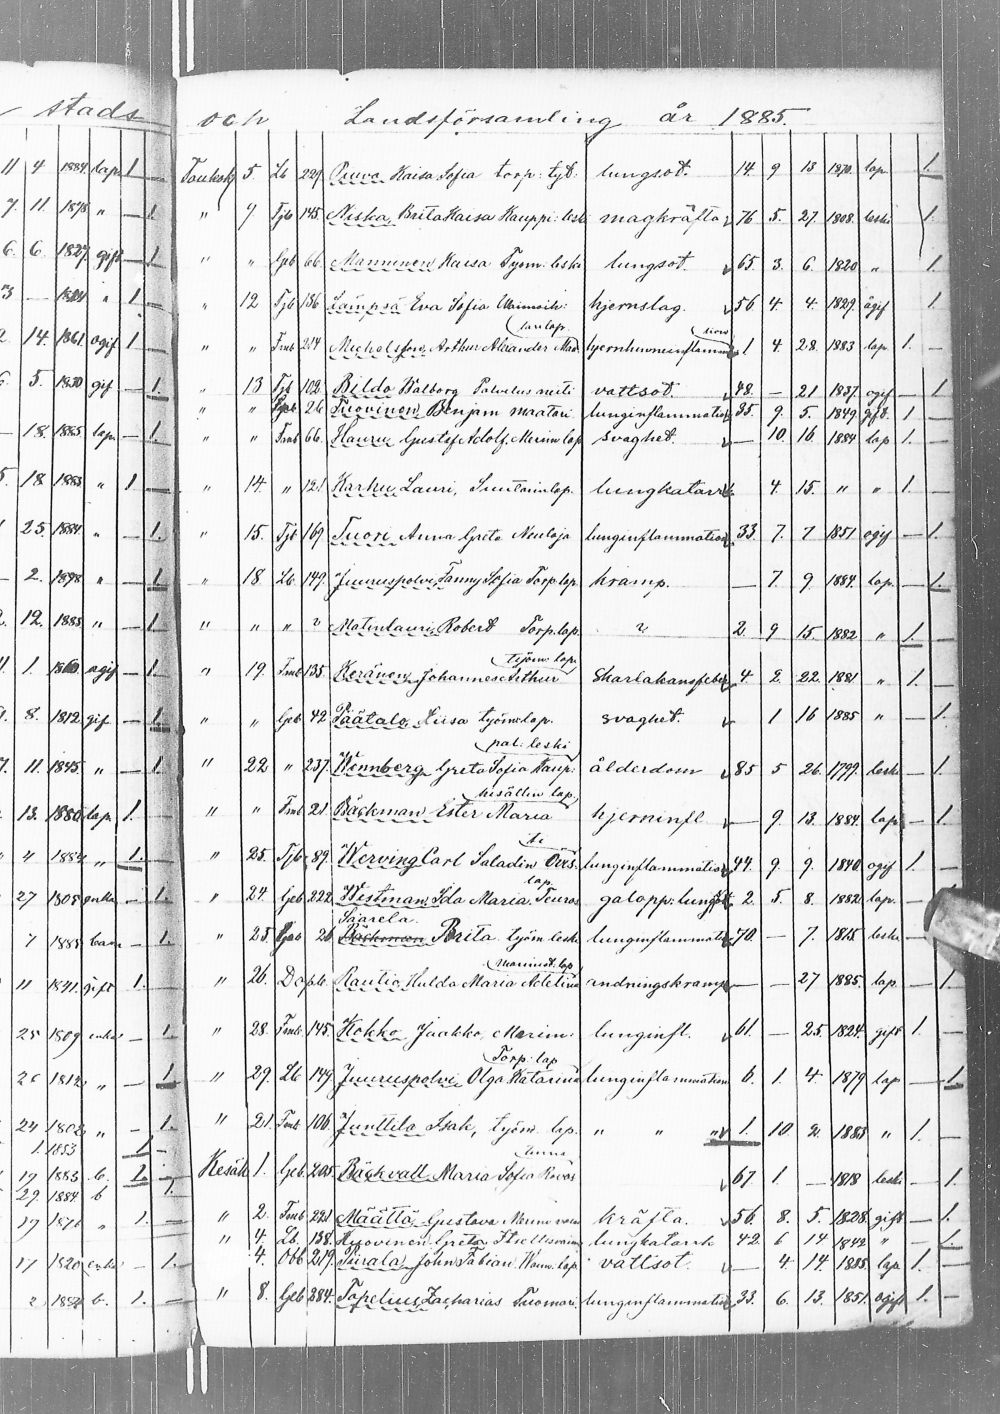 stads och Landsförsamling år 1885.
11 4 1884 lap. 1 —
7. 11. 1878 " — 1.
6. 6. 1827 gift — 1.
3 — " 1 —
14. 1861 ogif 1 —
5. 1830 gif — 1.
— 18. 1885 lap. — 1.
18 1883 " 1 —
25. 1884 " — 1.
— 2. 1878 " — 1.
12. 1883 " — 1.
1. ogif — 1.
8. 1812 gif — 1.
11. 1845 " — 1.
13. 1880 lap. 1. —
4 1884 " 1. —
27 1808 enka — 1.
7 1884 barn — 1.
11 1841 gift 1. —
25 1809 enka — 1.
26 1812 " — 1.
24 1802 " — 1.
1. 1853 1 —
19 1883 b. 1. —
29. 1884 b 1.
19 1876 " 1. —
17 1820 enka — 1.
2 b. 1. —
Toukok 5. Lb 229 Kaisa Sofia torp: tyt: lungsot. 14. 9 13 1870. lap. 1.
" 7 Tjb 145. Niska, Brita Kaisa Kauppi: leski magkräfta 76 5. 27. 1808. leski 1.
" " Geb 66. Manninen Kaisa Tyom. leski lungsot. 65. 3. 6. 1820 " 1.
" 12 Tjb 136 Lämpsä Eva Sofia hjernslag. 56 4. 4. 1829. ogif 1
" " Tmb 214 Michelsson, Arthur Alexander Maa- hjernhinneinflamm 1 4. 28. 1883 lap 1. —
" 13 Tjb 102. Bildo Walborg Palvelus neiti vattsot. 48. — 21 1837. ogif — 1
" " 26 Tuovinen Benjam maatari lunginflammation 35. 9. 5. 1849. gift. 1
" " Tmb 66. Hauru Gustaf Adolf, Merim lap svaghet. — 10 16. 1884 lap 1. —
" 14. " 121 Karhu, Lauri, Suutarin lap. lungkatarrh 4. 15. " " 1. —
" 15. Tjb 169 Tuori Anna Greta Neulaja lunginflammation 33. 7. 7 1851 ogif — 1.
" 18 Lb. 149. Juuruspolvi, Fanny Sofia Torp. lap. kramp. — 7. 9 1884. lap. — 1.
" " " ? Matinlauri, Robert Torp. lap. ? 2. 9 15. 1882 " 1. —
työm. lap.
" 19. Tmb 135. Keränen, Johannes Arthur Skarlakansfeber 4. 2. 22. 1881 " 1. —
" " Geb 42 Päätalo, Liisa työm: lap. svaghet. 1 16 1885 " — 1.
pal: leski
" 22 " 237. Wennberg Greta Sofia Kaup: ålderdom 85 5 26. 1799. leski — 1.
kisällin lap.
" " Tmb 21. Bäckman Ester Maria hjerninfl. — 9. 13. 1884. lap. — 1.
" 25. Tjb 89. Werving Carl Saladin Övers. lunginflammation 44. 9. 9. 1840 ogif 1. —
lap.
" 24. Geb 222 Westman, Ida Maria galopp: lungsot. 2. 5. 8. 1882 lap. —
Saarela
" 25. 26 Bäckman Brita työm: leski lunginflammation 70. — 7. 1815 leski —
" 26. Rautio, Hulda Maria Adelina andningskramp — — 27 1885. lap. — 1.
" 28. Tmb 145. Kokko, Jaakko, Merim. lunginfl. 61. — 25. 1824. gift 1. —
Torp: lap
" 29. Lb 149. Juuruspolvi, Olga Katarina lunginflammation 6. 1. 4. 1879 lap — 1.
" 21. Tmb 106. Junttila Isak, työm. lap. " " " 1. 10. 2. 1883 " 1. —
Kesäk 1. Geb 205. Bäckvall, Maria Sofia 67 1 — 1818 leski — 1.
" 2. Tmb 221 Määttä, Gustava kräfta. 56. 8. 5. 1828. gift — 1.
" 4. Lb. 138. Greta lungkatarrh 42. 6 14 1842 " — 1
4. Obb 219. Piirala, John Fabian lap vattsot. — 4 14. 1885. lap 1. —
" 8. Geb 284. Topelius, Zacharias Tuomari, lunginflammation 33. 6. 13. 1851. ogift 1. —